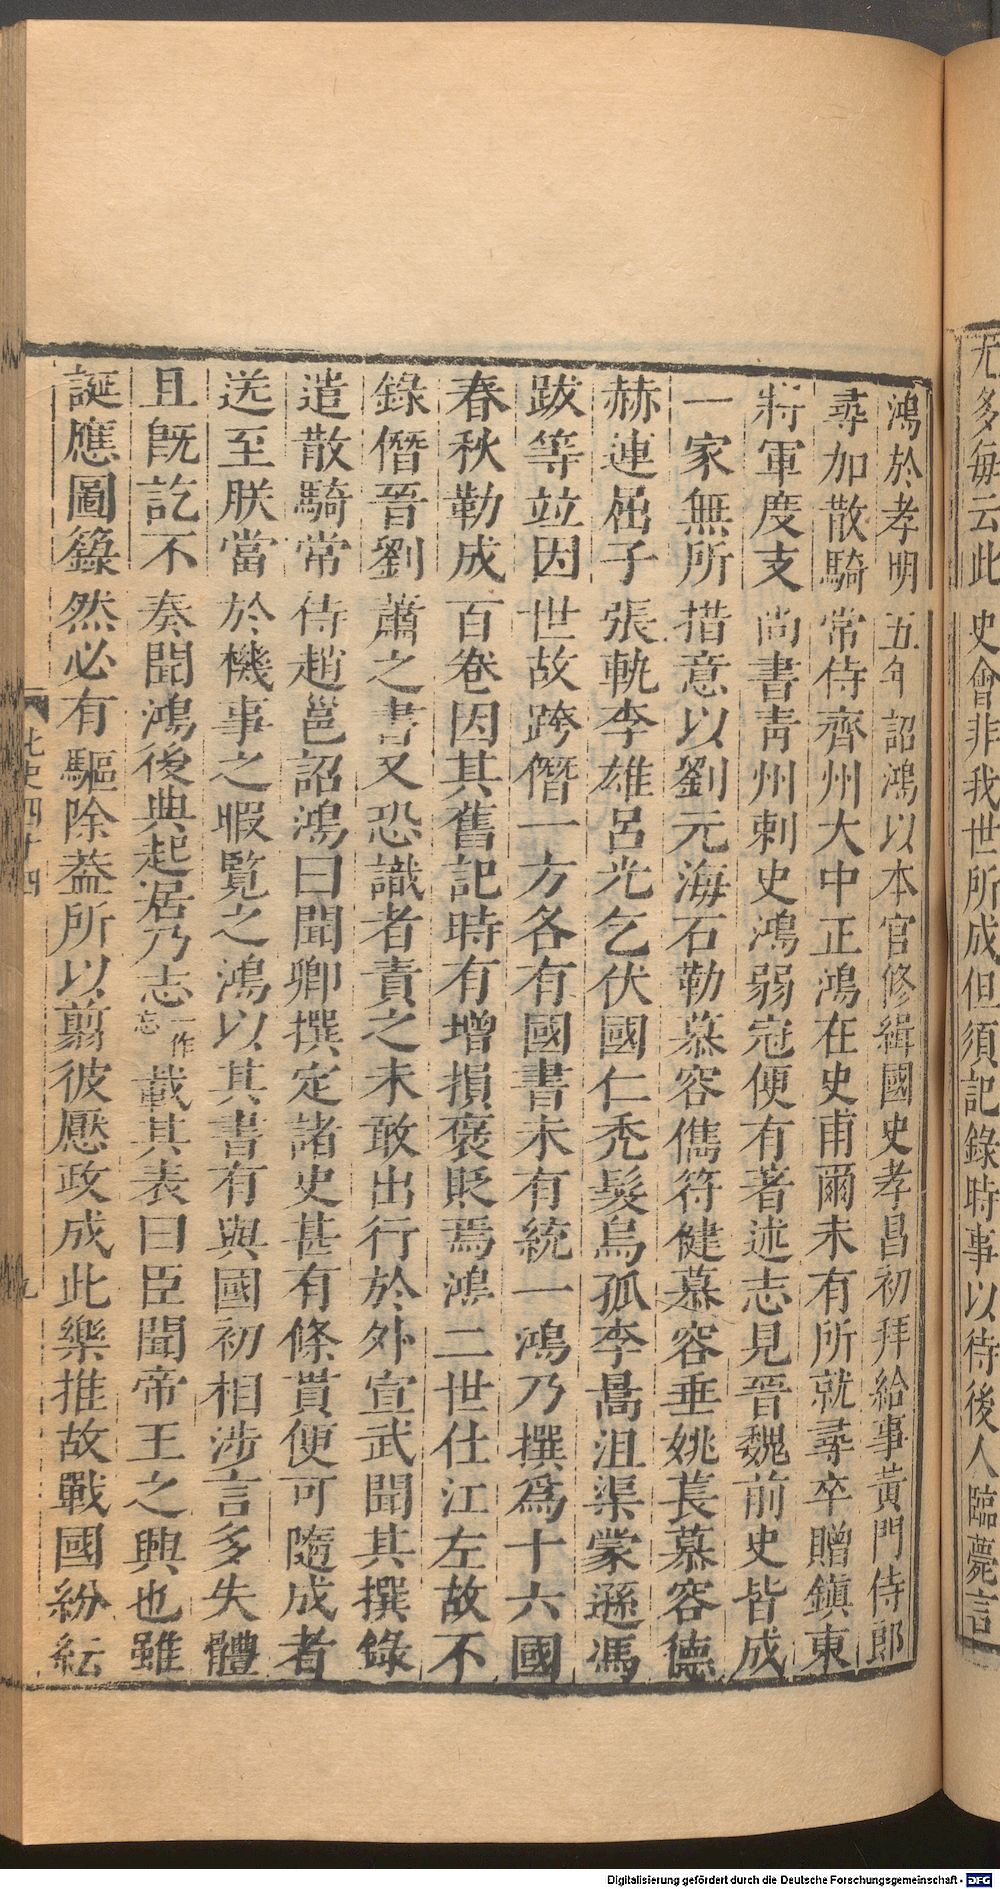 尤多每云此史會非我世所成但須記錄時事以待後人臨薨言
鴻於孝明五年詔鴻以本官修緝國史孝昌初拜給事黃門侍郎
尋加散騎常侍齊州大中正鴻在史甫爾未有所就尋卒贈鎮東
將軍度支尚書青州刺史鴻弱冠便有著述志見晉魏前史皆成
一家無所措意以劉元海石勒慕容儁符健慕容垂姚萇慕容德
赫連屈子張軌李雄呂光乞伏國仁禿髮烏孤李暠沮渠蒙遜馮
跋等竝因世故跨僭一方各有國書未有統一鴻乃撰爲十六國
春秋勒成百卷因其舊記時有增損褒貶焉鴻二世仕江左故不
錄僭晉劉蕭之書又恐識者責之未敢出行於外宣武聞其撰錄
遣散騎常侍趙邕詔鴻曰聞卿撰定諸史甚有條貫便可隨成者
送至朕當於機事之暇覽之鴻以其書有與國初相涉言多失體
且既訖不奏聞鴻後典起居乃志一作忘載其表曰臣聞帝王之興也雖
誕應圖籙然必有驅除葢所以翦彼厭政成此樂推故戰國紛紜
北史四十四
九
Digitalisierung gefördert durch die Deutsche Forschungsgemeinschaft - DFG